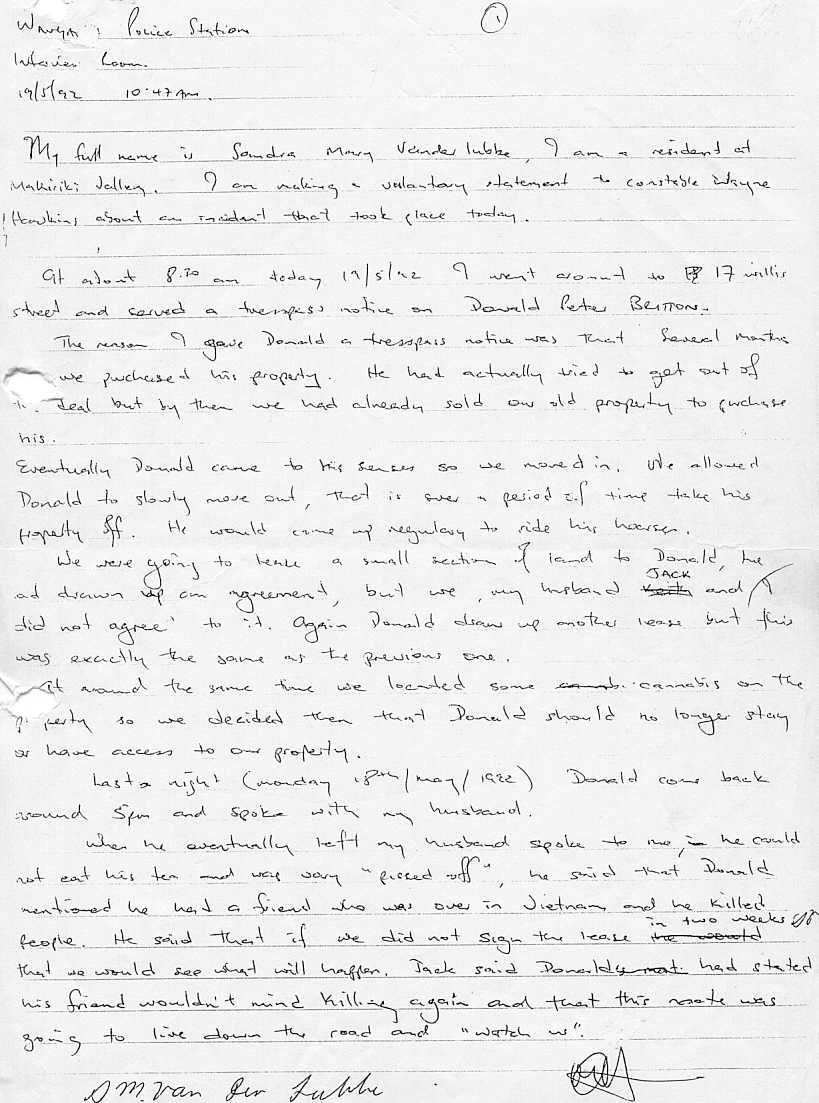 1
Police Station
Interview Room.
19/5/92 10:47 am.
My full name is Sandra Mary Vander lubbe, I am a resident at
Makiriki Valley. I am making a voluntary statement to constable Wayne
Hawkins about an incident that took place today.
At about 8.30 am today 19/5/92 I went around to 17 willis
street and served a tresspass notice on Donald Peter BRITTON.
The reason I gave Donald a tresspass notice was that several months
we purchased his property. He had actually tried to get out of
deal but by then we had already sold our old property to purchase
his.
Eventually Donald came to his senses so we moved in. We allowed
Donald to slowly move out, that is over a period of time take his
property off. He would come up regulary to ride his horses.
We were going to lease a small section of land to Donald, he
ad drawn up an agreement, but we, my husband Keith JACK and I
did not agree to it. Again Donald drew up another lease but this
was exactly the same as the previous one.
At around the same time we located some cannabis on the
perty so we decided then that Donald should no longer stay
or have access to our property.
Last night (monday 18th/may/1992) Donald came back
around 5pm and spoke with my husband.
When he eventually left my husband spoke to me, he could
not eat his tea and was very "pissed off", he said that Donald
mentioned he had a friend who was over in Vietnam and he killed
people. He said that if we did not sign the lease he would in two weeks
that we would see what will happen. Jack said Donald had stated
his friend wouldn't mind killing again and that this mate was
going to live down the road and "watch us".
S M. Van Der Lubbe